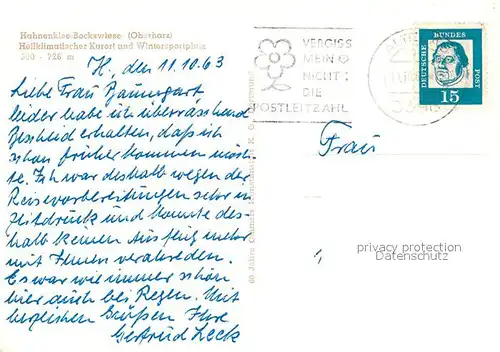 Hahnenklee-Bockswiese (Oberharz)
Heilklimatischer Kurort und Wintersportplatz
560 - 726 m
H., den 11.10.63
Liebe Frau Baumgart,
leider habe ich überraschend
Bescheid erhalten, daß ich
schon früher kommen müch-
te. Ich war deshalb wegen der
Reisevorbereitungen sehr in
Zeitdruck und konnte des-
halb keinen Ausflug mehr
mit Ihnen verabreden.
Es war wie immer schön
hier auch bei Regen. Mit
herzlichen Grüßen Ihre
Gertrud Zeck
60 Jahre
VERGISS
MEIN
NICHT:
DIE
POSTLEITZAHL
DEUTSCHE BUNDES POST
15
Frau
privacy protection
Datenschutz